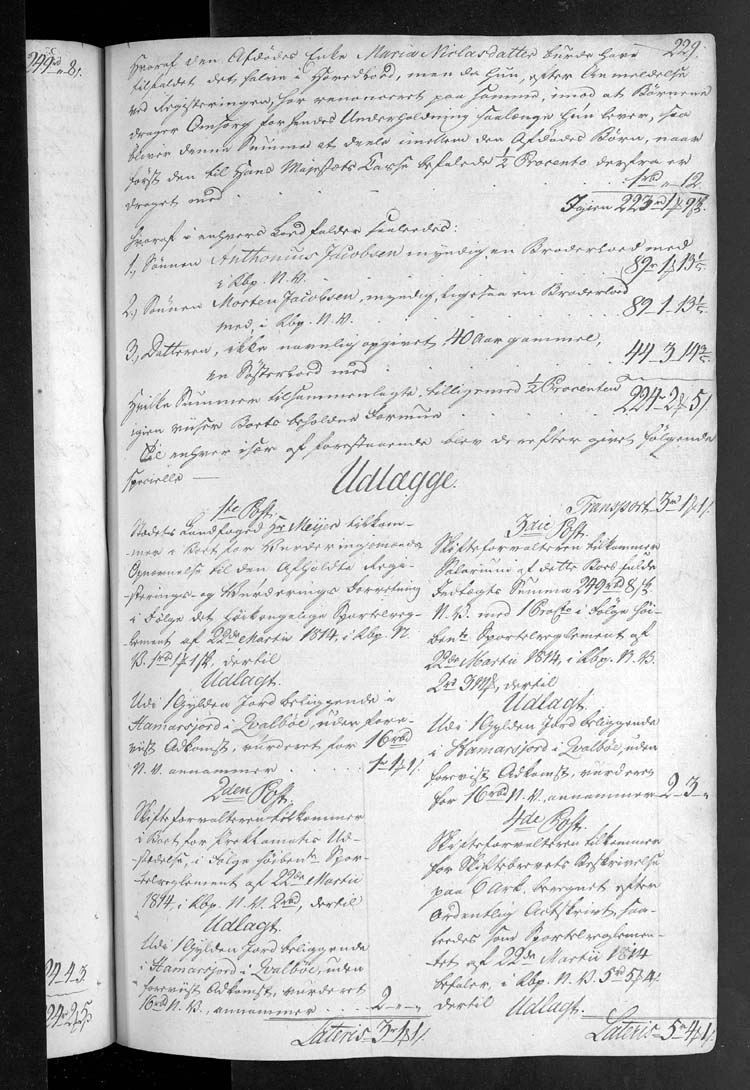 229.
hvoraf den Afdødes Enke Maria Niclasdatter burde have
tilfaldet det halve i Hovedlood, men da hun, efter Anmeldelse
ved Registeringen, har renonceret paa samme, imod at Børnene
drager Omsorg for hendes Underholdning saalænge hun lever, saa
bliver denne Summa at deele imellem den Afdødes Børn, naar
først den til Hans Majestæts Casse befalede 1/2 Procento derfra er
draget med . . . 1 rbd „ 12
Igien 223 rd 1 ₰ 9 ß.
hvoraf i enhvers Lood falder saaledes:
1, Sønnen Anthonius Jacobsen myndig en Broderlood med
i Rbp. N. V. . . . 89 – 1 ₰ 13 1/5
2, Sønnen Morten Jacobsen, myndig, ligesaa en Broderlod
med, i Rbp. N. V. . . . 89 – 1 – 13 1/5
3, Datteren, ikke navnlig opgivet, 40 Aar gammel,
en Søsterlood med . . . 44 – 3 – 14 3/5
Hvilke Summer tilsammenlagte tilligemed 1/2 Procenten
igien viser Boets beholdne Formue . . . 224 – 2 ₰ 5 ß
Til enhver især af forestaaende blev derefter givet følgende
specielle —
Udlægge.
1ste Post.
Stædets Landfoged Hr Meijer tilkom-
mer i Boet for Vurderingsmænds
Opnævnelse til den Afholdte Regi-
sterings- og Vurderings Forretning
i Følge det høikongelige Sportelreg-
lement af 22de Martii 1814, i Rbp. N.
V. 1 rbd 1 ₰ 1 ß, dertil
Udlagt.
Udi 1 Gylden Jord beliggende i
Hamarsjord i Qvalbøe, uden fore-
viist Adkomst, vurderet for 16 rbd
N. V. annammer . . . 1 – 1 ₰ 1 ß
2den Post.
Skifteforvalteren tilkommer
i Boet for Proklamatis Ud-
stædelse, i Følge høibemte Spor-
telreglement af 22de Martii
1814, i Rbp. N. V. 2 rbd, dertil
Udlagt.
Udi 1 Gylden Jord beliggende
i Hamarsjord i Qvalbøe, uden
foreviist Adkomst, vurderet
16 rd N. V., annammer . . . 2 – „ – „
Lateris 3 – 1 ₰ 1 ß
Transport 3 rd 1 ₰ 1 ß
3die Post.
Skifteforvalteren tilkommer
Salarium af dette Boes fulde
Indtægts Summa 249 rbd 8 ß
N. V. med 1 Procto i Følge høi-
bemte Sportelreglement af
22de Martii 1814, i Rbp. N. V.
2 rd 3 Mk, dertil
Udlagt.
Udi 1 Gylden Jord beliggende
i Hamarsjord i Qvalbøe, uden
foreviist Adkomst, vurderet
for 16 rbd N. V., annammer 2 – 3 – „
4de Post.
Skifteforvalteren tilkommer
for Skiftebrevets Beskrivelse
paa 6 Ark, beregnet efter
Ordentlig Actskrivt, saa-
ledes som Sportelreglemen-
tet af 22de Martii 1814
befaler, i Rbp. N. V. 5 rd 5 ₰ 4 ß
dertil Udlagt.
Lateris 5 – 4 ₰ 1 ß